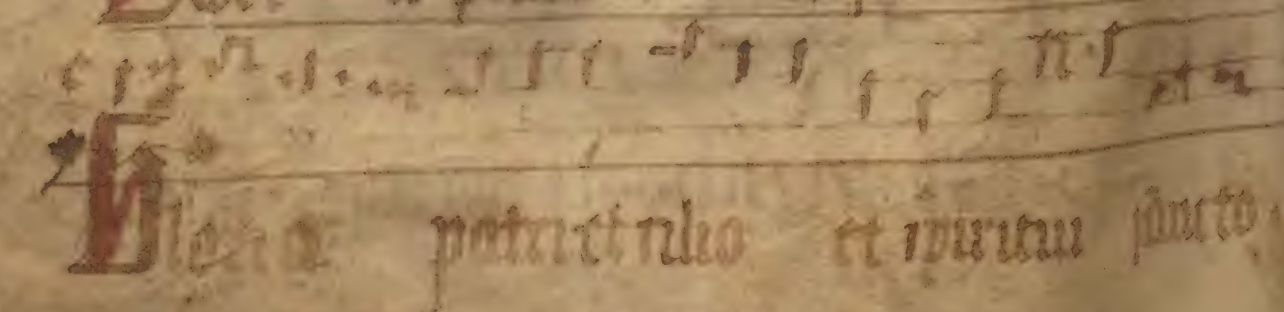 Gloria patri et filio et spiritui sancto